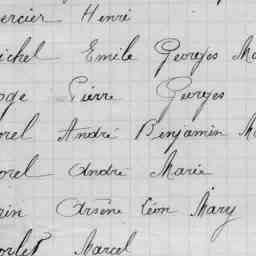 ercier Henri
ichel Emile Georges Ma
oge Pierre Georges
orel André Benjamin M
orel André Marie
rin Arsène Léon Mary
orlet Marcel